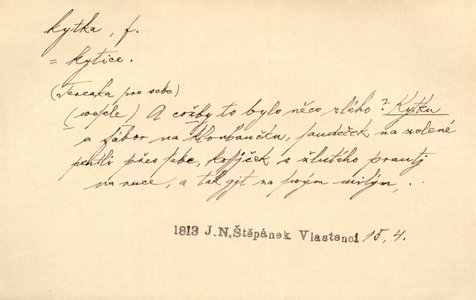 kytka, f.
= kytice.
(Terezka pro sebe)
(wesele) A cožby to bylo něco zlého? Kytku
a fábor na kloubaučku, šaudeček na zelené
pentli přes sebe, košjček z žlutého prautj
na ruce, a tak gjt za swým milým, ..
1813 J.N.Štěpánek Vlastenci 15, 4.